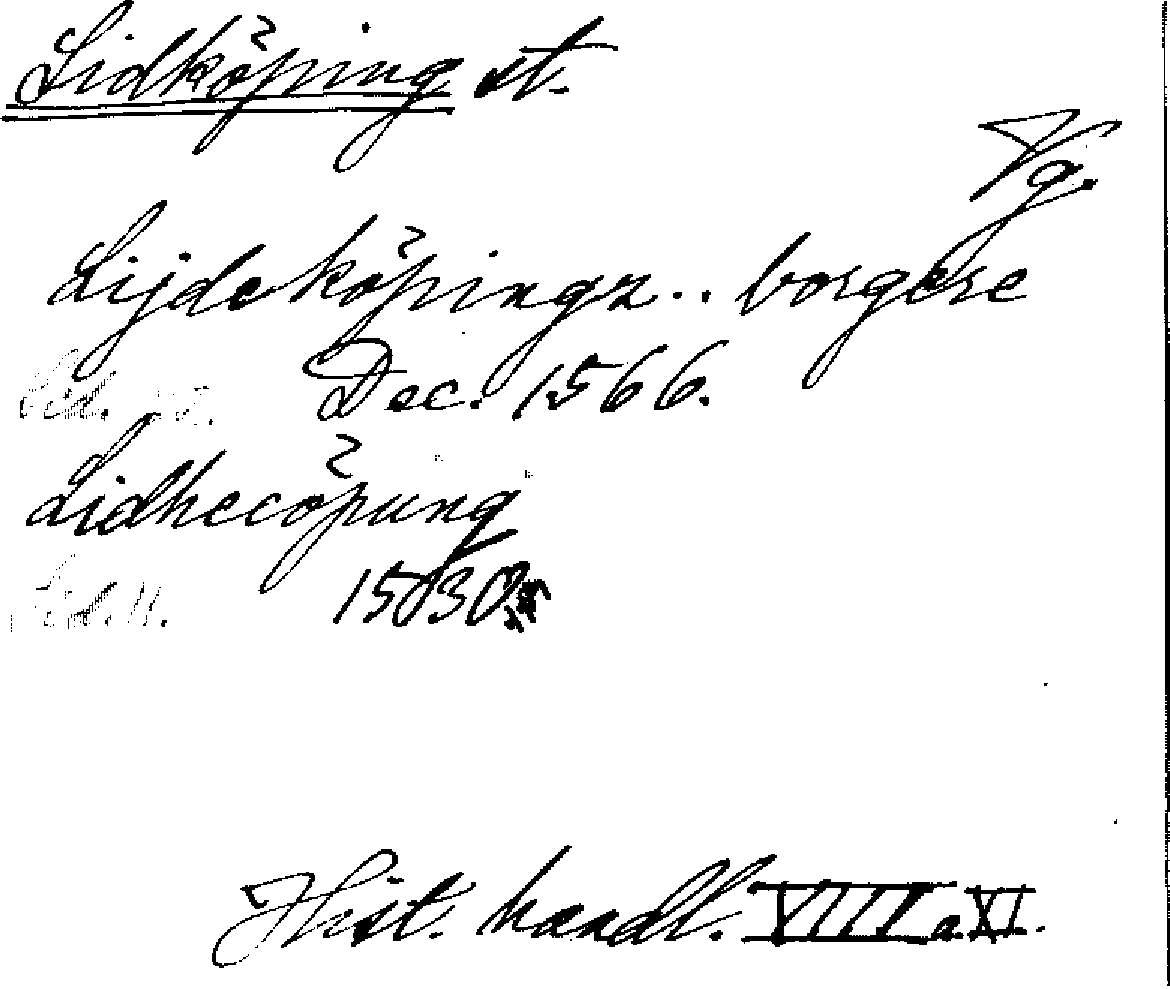 Lidköping st.
Vg.
Lijdeköpingz.. borgere
Dec. 1566.
Lidhecöpung
Sid. 11. 1530
Hist. handl. VIII a. XI.